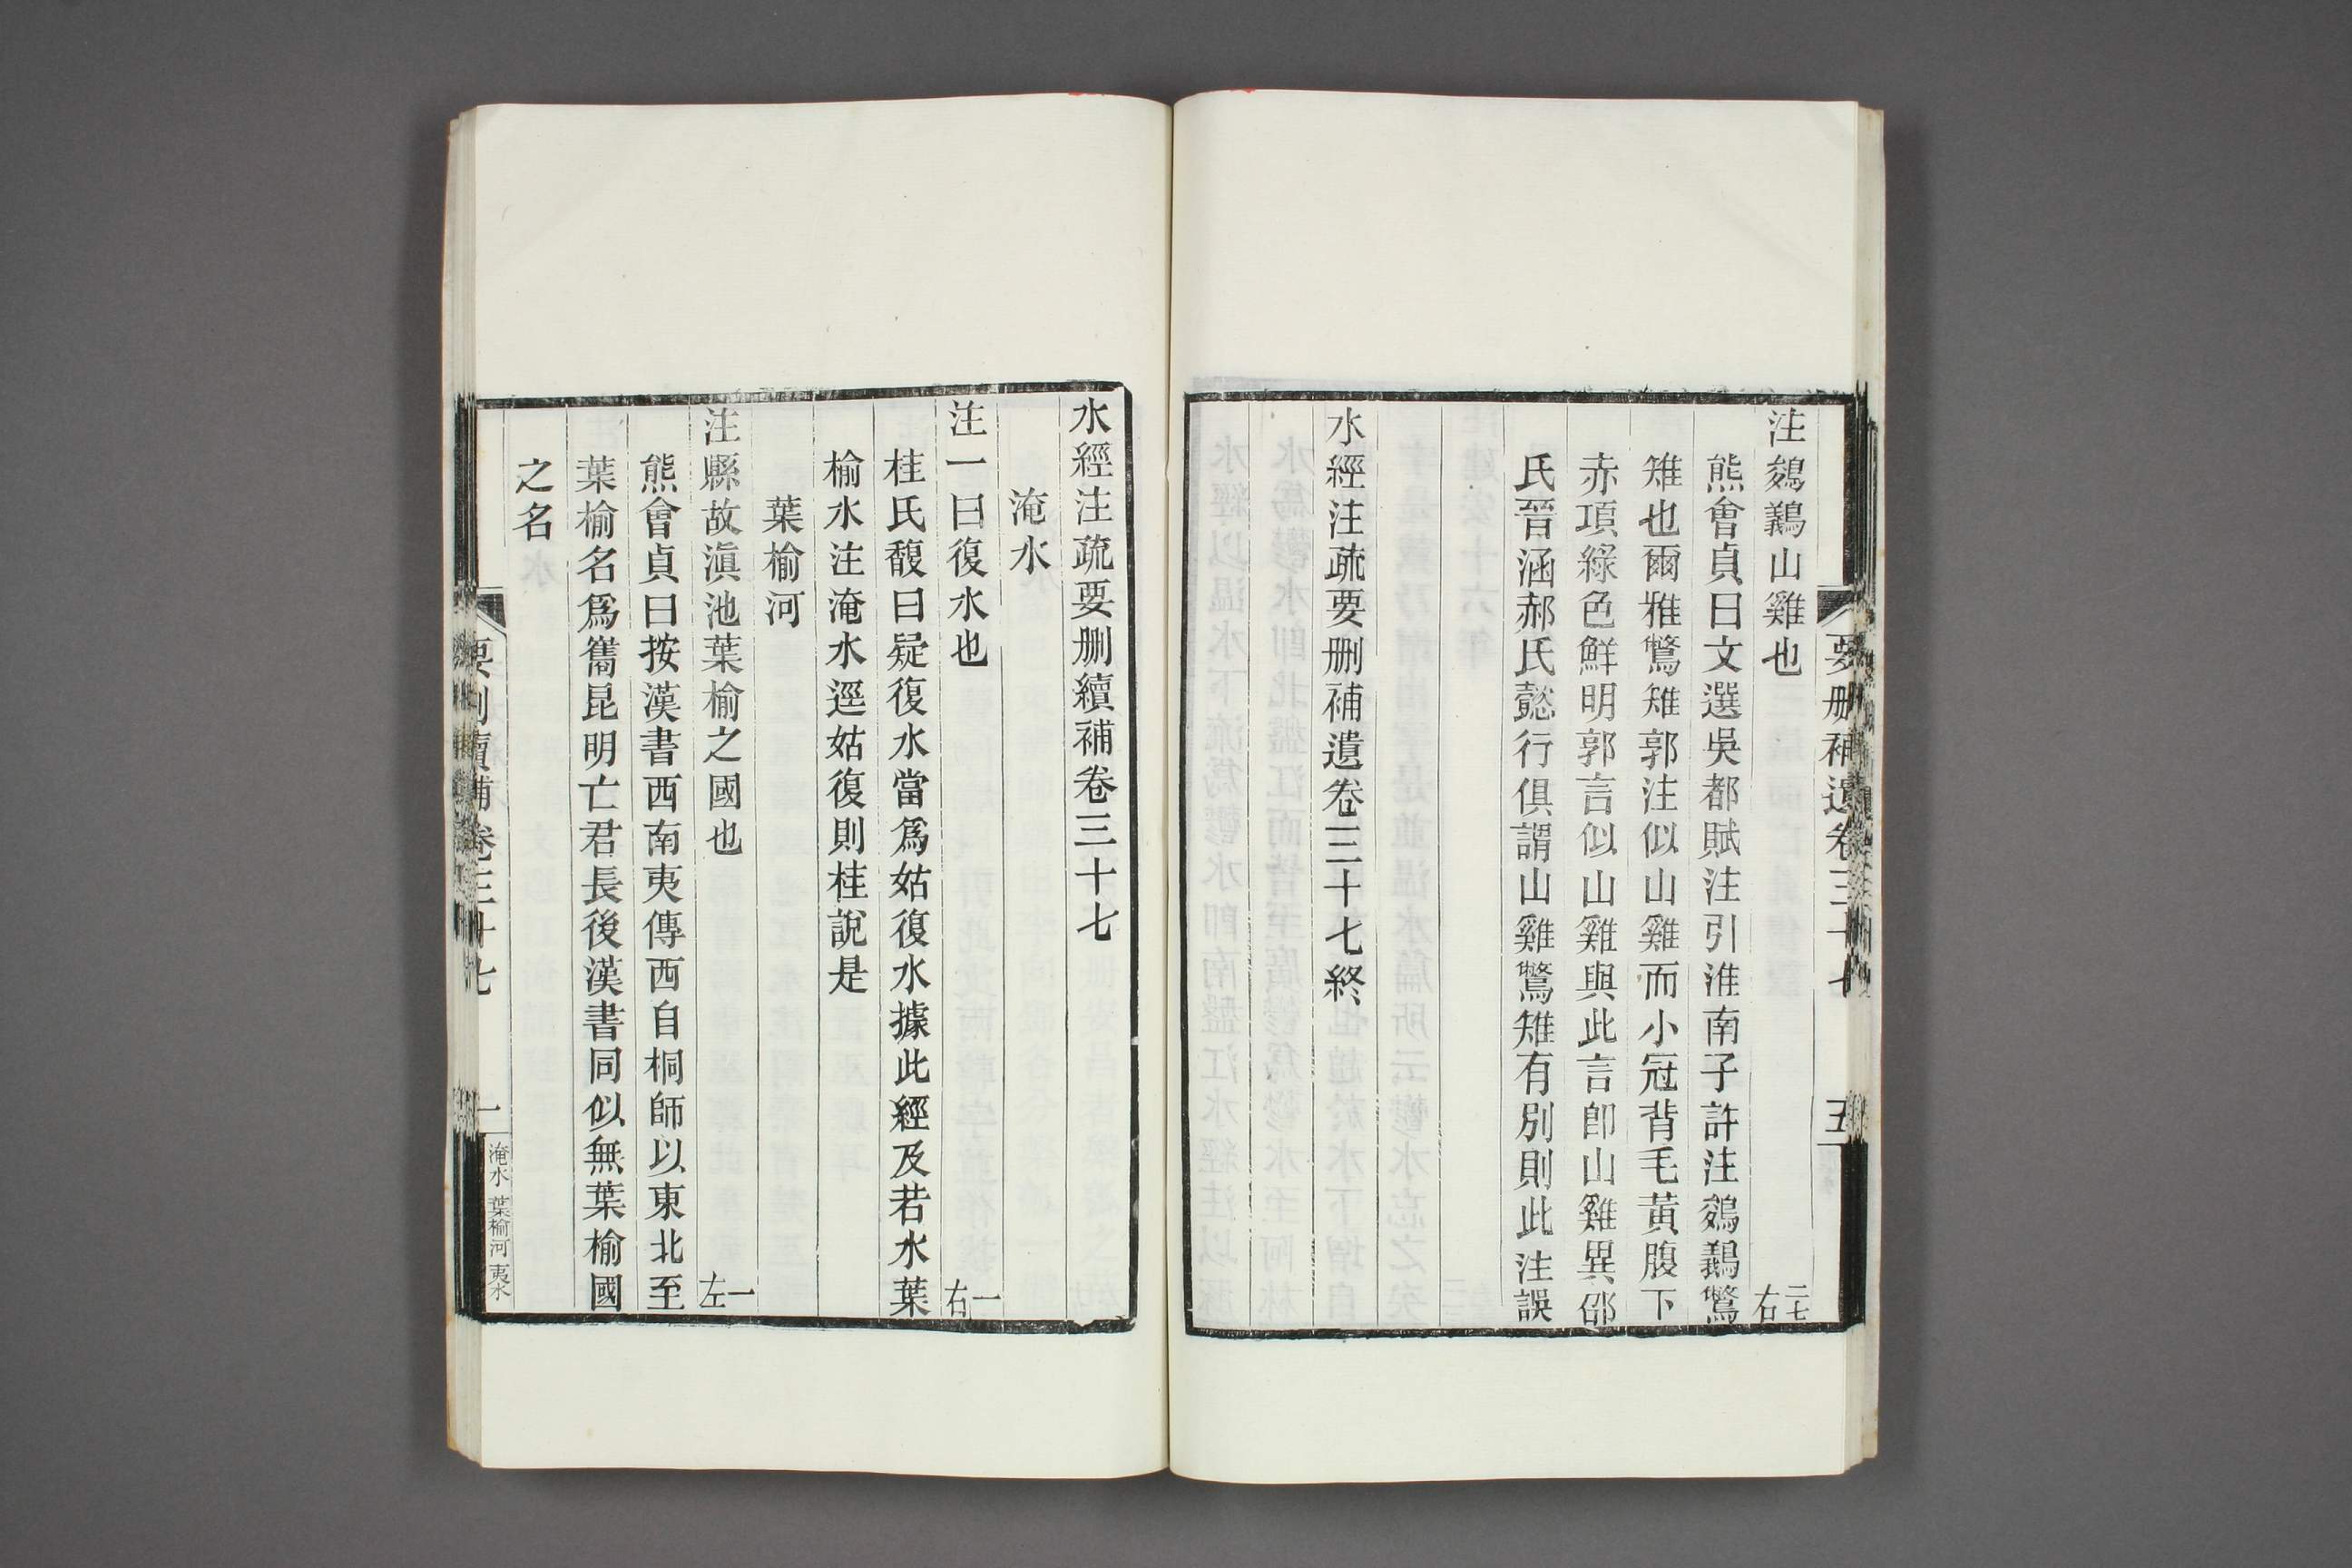 注鵕鸃山雞也 二七右
熊會貞曰文選吳都賦注引淮南子許注鵕鸃鷩
雉也爾雅鷩雉郭注似山雞而小冠背毛黃腹下
赤項綠色鮮明郭言似山雞與此言卽山雞異邵
氏晉涵郝氏懿行俱謂山雞鷩雉有別則此注誤
水經注疏要删補遺卷三十七終
要删補遺卷三十七 五
水經注疏要删續補卷三十七
淹水
注一曰復水也 一右
桂氏馥曰疑復水當爲姑復水據此經及若水葉
榆水注淹水逕姑復則桂說是
葉榆河
注縣故滇池葉榆之國也 一左
熊會貞曰按漢書西南夷傳西自桐師以東北至
葉榆名爲嶲昆明亡君長後漢書同似無葉榆國
之名
要删續補卷三十七 一 淹水 葉榆河 夷水